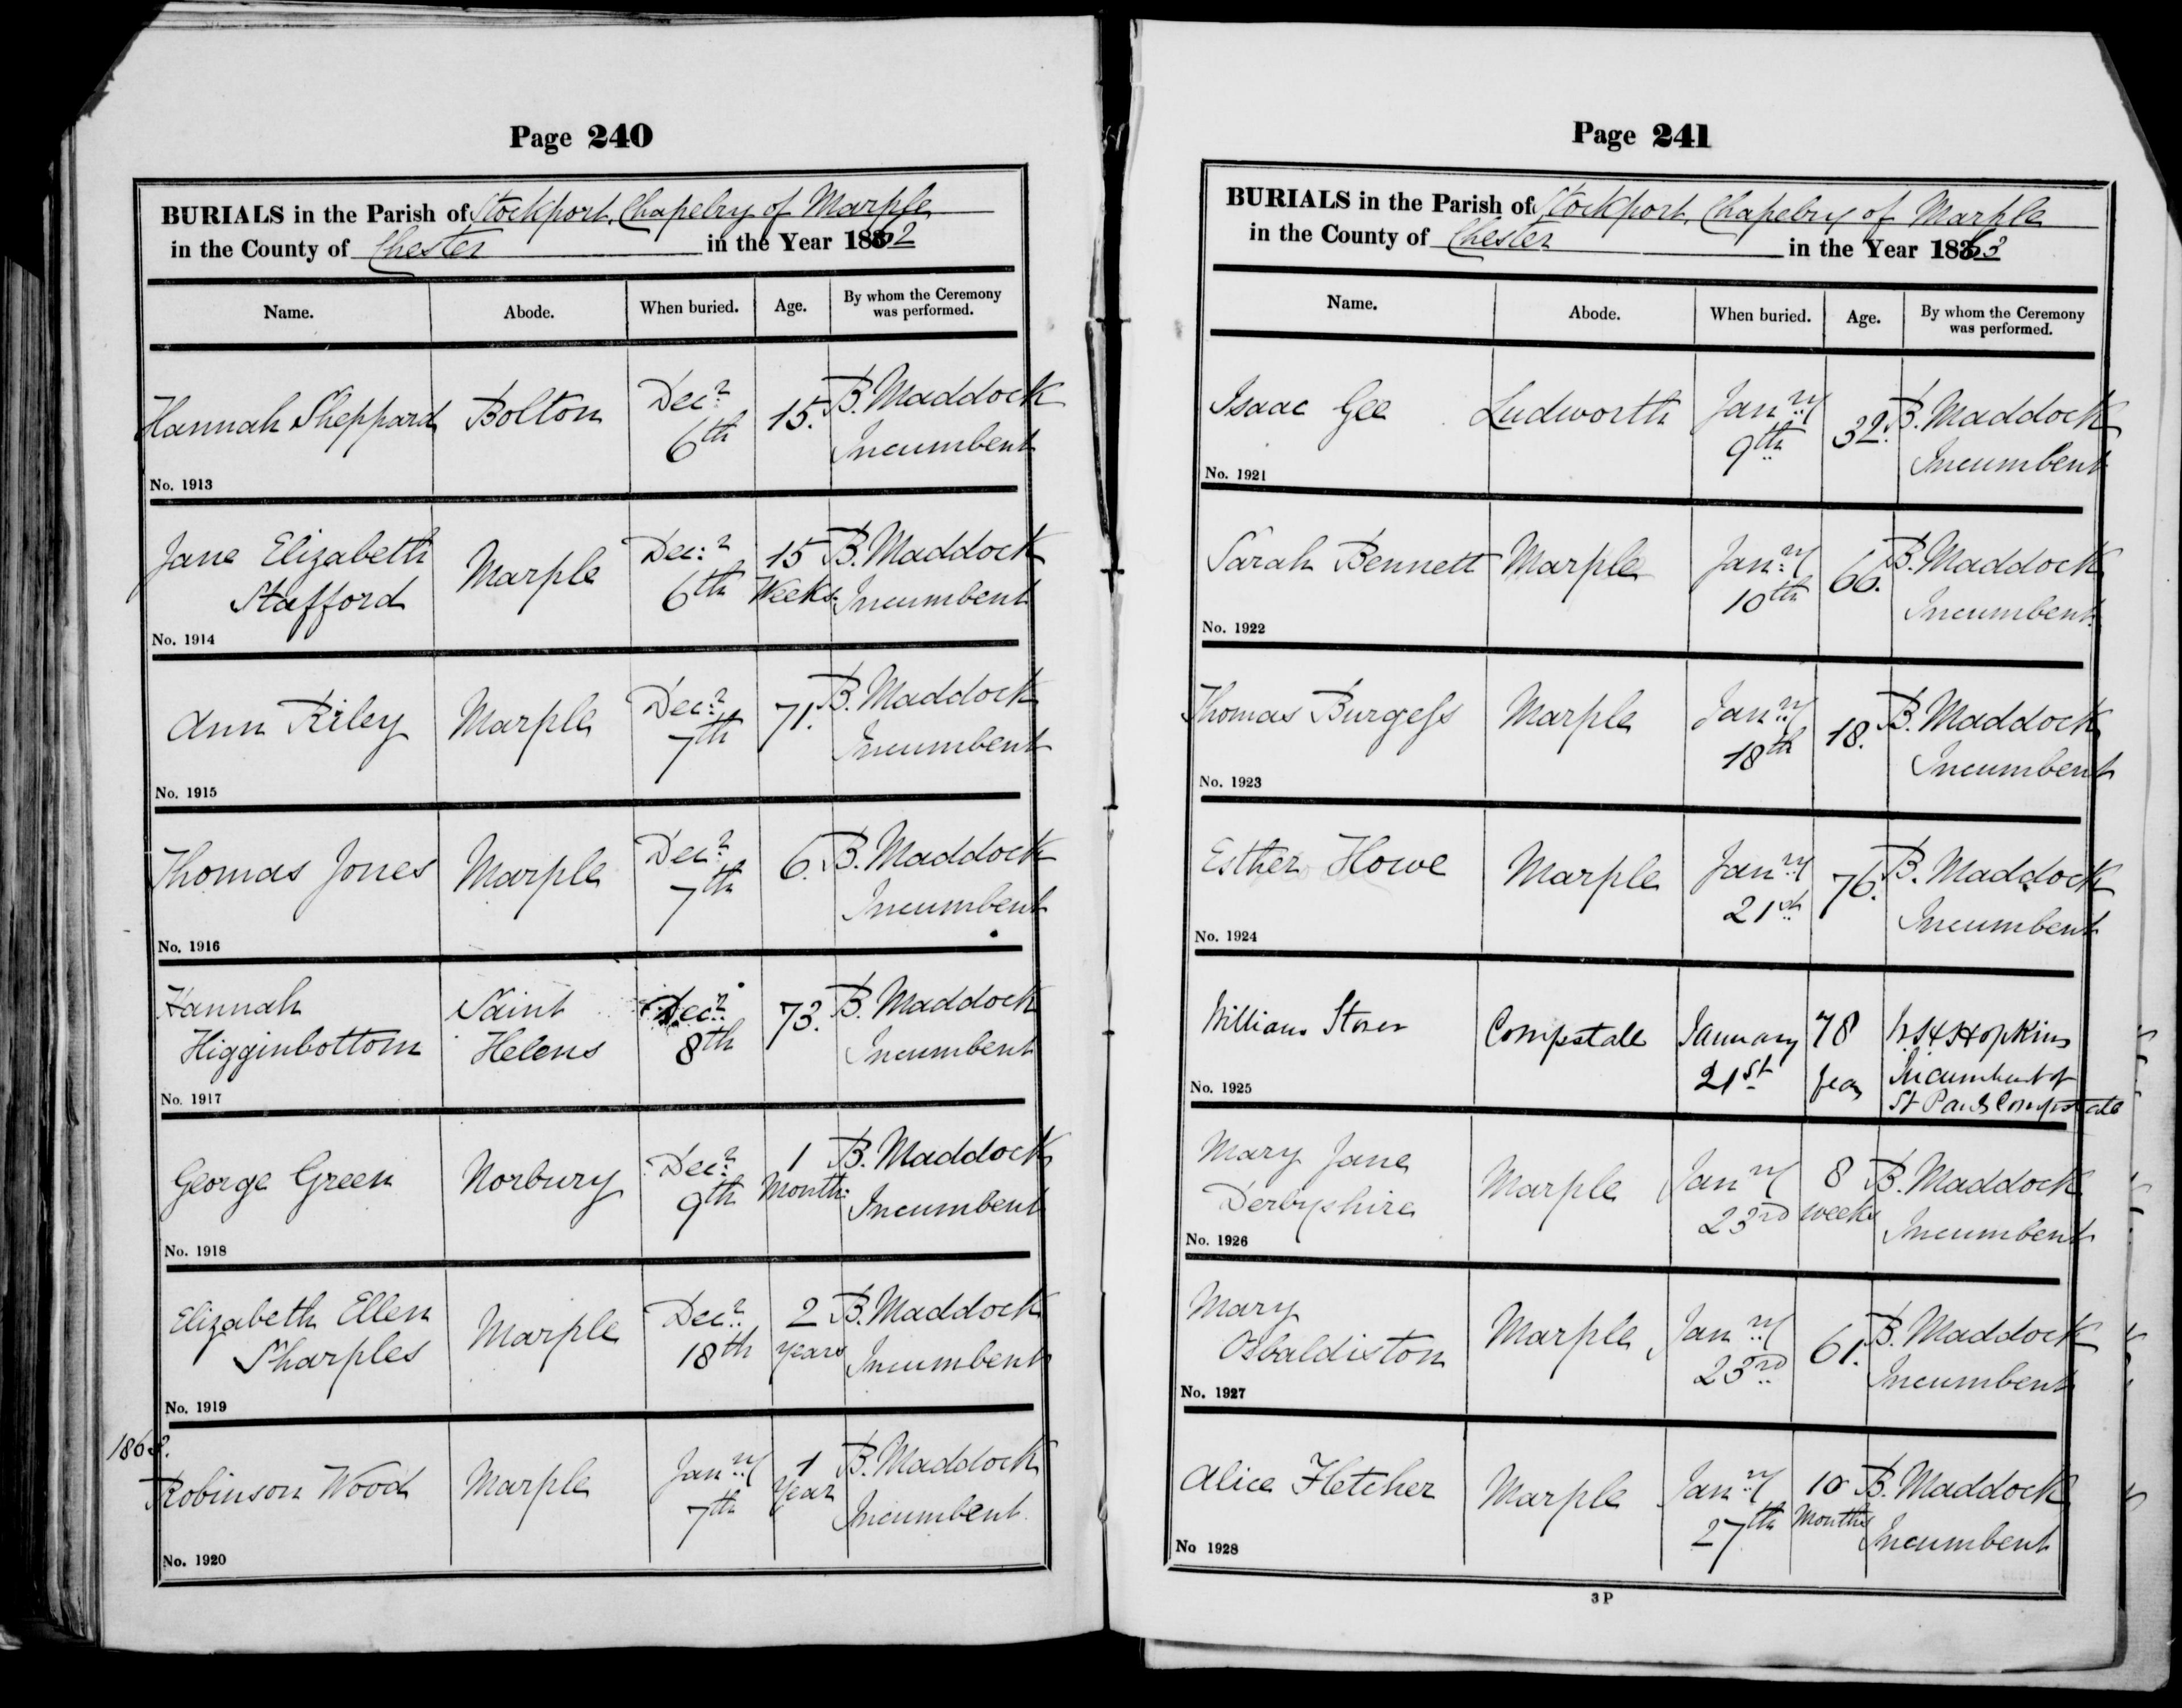 Page 240
BURIALS in the Parish of Stockport, Chapelry of Marple
in the County of Chester in the Year 1862
Name. Abode. When buried. Age. By whom the Ceremony was performed.
Hannah Sheppard Bolton Decr 6th 15. B. Maddock Incumbent
No. 1913
Jane Elizabeth Stafford Marple Decr 6th 15 Weeks. B. Maddock Incumbent
No. 1914
Ann Riley Marple Decr 7th 71. B. Maddock Incumbent
No. 1915
Thomas Jones Marple Decr 7th 6. B. Maddock Incumbent
No. 1916
Hannah Higginbottom Saint Helens Decr 8th 73. B. Maddock Incumbent
No. 1917
George Green Norbury Decr 9th 1 Month B. Maddock Incumbent
No. 1918
Elizabeth Ellen Sharples Marple Decr 18th 2 years B. Maddock Incumbent
No. 1919
Robinson Wood Marple Jany 7th 1 Year B. Maddock Incumbent
No. 1920
Page 241
BURIALS in the Parish of Stockport, Chapelry of Marple
in the County of Chester in the Year 1863
Name. Abode. When buried. Age. By whom the Ceremony was performed.
Isaac Gee Ludworth Jany 9th 32. B. Maddock Incumbent
No. 1921
Sarah Bennett Marple Jany 10th 66. B. Maddock Incumbent
No. 1922
Thomas Burgess Marple Jany 18th 18. B. Maddock Incumbent
No. 1923
Esther Howe Marple Jany 21st 76. B. Maddock Incumbent
No. 1924
William Compstall January 21st 78 Hopkins Incumbent of St Pauls Compstall
No. 1925
Mary Jane Derbyshire Marple Jany 23rd 8 weeks B. Maddock Incumbent
No. 1926
Mary Osbaldiston Marple Jany 23rd 61. B. Maddock Incumbent
No. 1927
Alice Fletcher Marple Jany 27th 10 Months B. Maddock Incumbent
No 1928
3 P